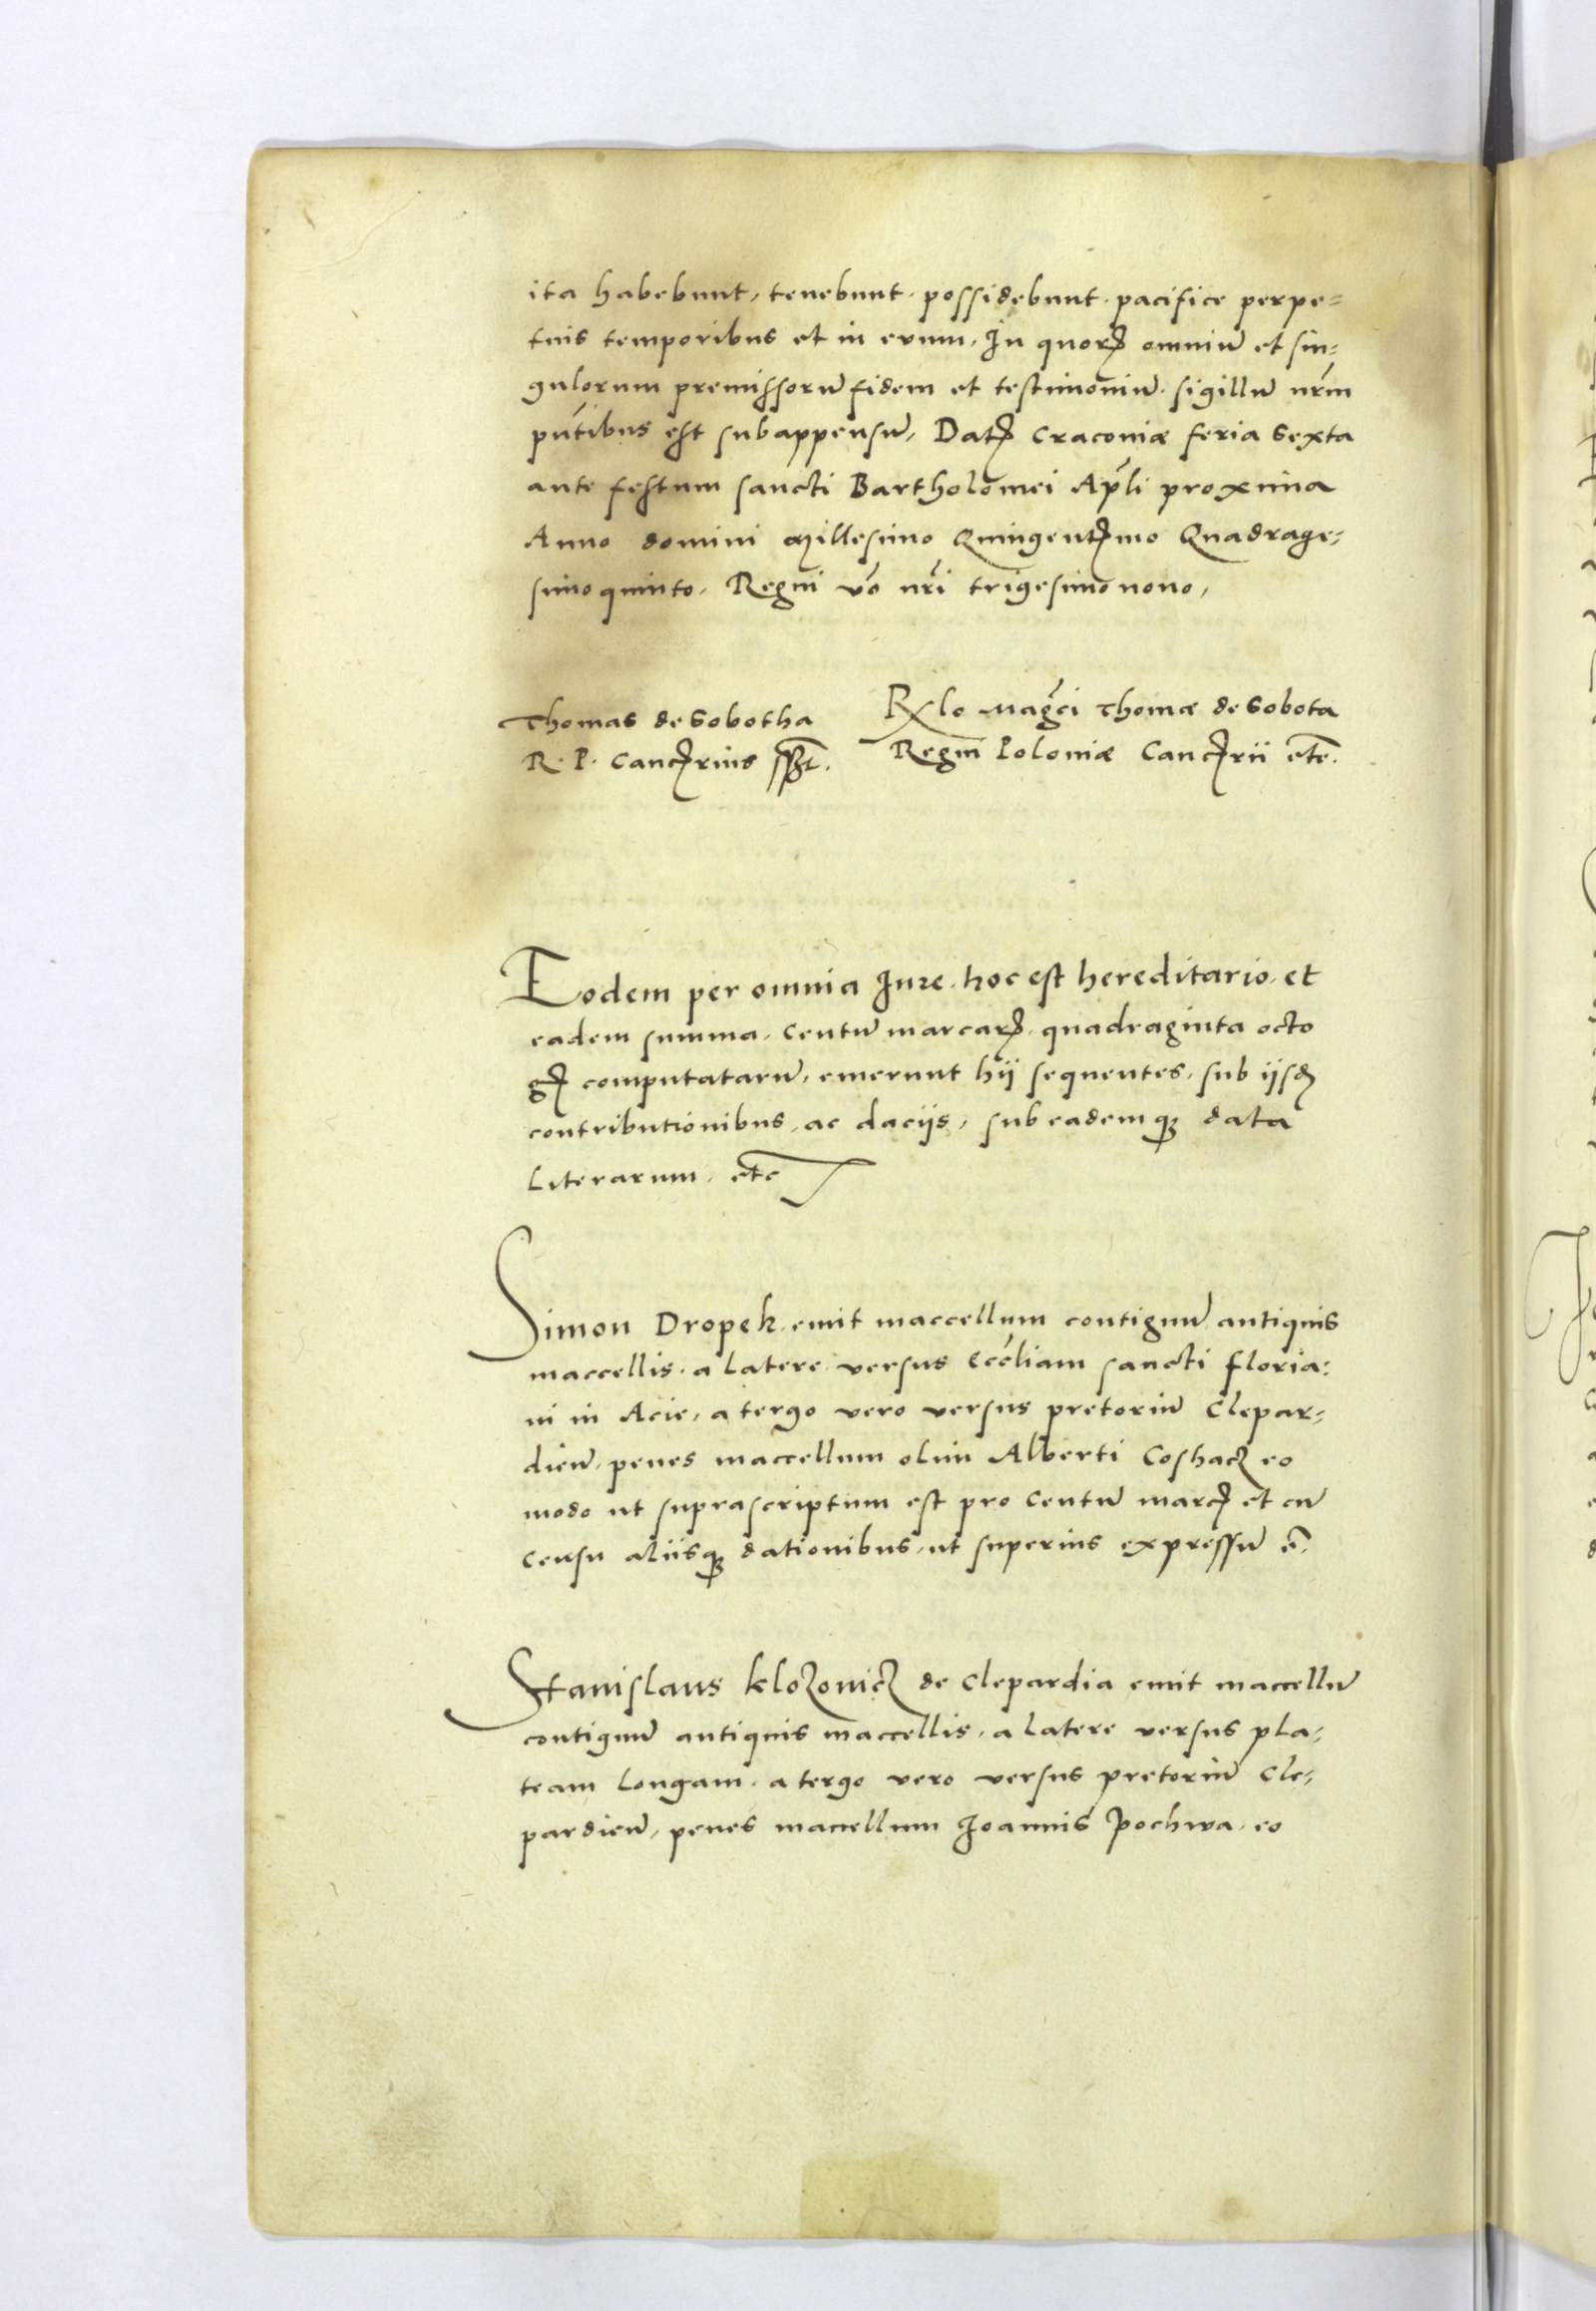 ita habebunt, tenebunt. possidebunt. pacifice perpe=
tuis temporibus et in evum. In quorꝝ omniū et sin=
gulorum premissorū fidem et testimoniū. sigillū nr̄m
pn̄tibus est subappensū, Datꝭ Cracoviæ feria sexta
ante festum sancti Bartholomei Ap̄li proxima
Anno domini Millesimo Quingentꝭmo Quadrage=
simo quinto. Regni vō nr̄i trigesimo nono,
Thomas de Sobotha
R. P. Cancꝭrius sszt.
Rlo Maḡci Thomæ de Sobota
Regni Poloniæ Cancꝭrii etc̄.
Eodem per omnia Iure. hoc est hereditario. et
eadem summa. Centū marcarꝝ. quadraginta octo
gꝭ computatarū, emerunt hij sequentes. sub ijsdꝫ
contributionibus. ac dacijs, sub eademqꝫ data
Literarum. etc
Simon Dropek. emit maccellum contiguū antiquis
maccellis. a latere versus Eccl̄iam sancti Floria=
ni in Acie, a tergo vero versus pretoriū Clepar=
dien̄. penes maccellum olim Alberti Coshacz eo
modo ut suprascriptum est pro Centū marcꝭ et cū
censu aliisqꝫ dationibus. ut superius expressū ē.
Stanislaus Klozovicz de Clepardia emit maccellū
contiguū antiquis maccellis. a latere versus pla=
team Longam. a tergo vero versus pretoriū Cle=
pardien̄, penes maccellum Joannis Pochwa. eo